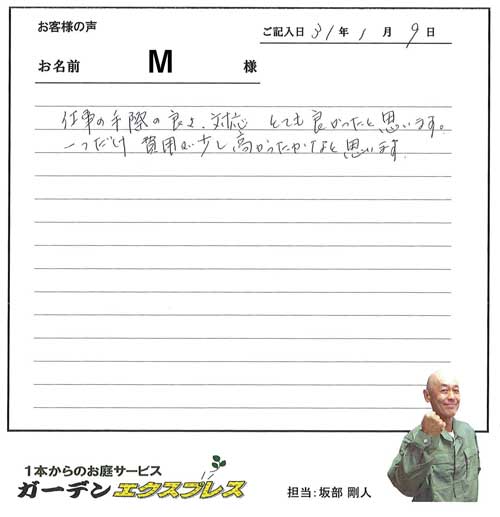 お客様の声
ご記入日 31年 1月 9日
お名前 M 様
仕事の手際の良さ、対応 とても良かったと思います。
一つだけ 費用が少し高かったかなと思います。
1本からのお庭サービス
ガーデンエクスプレス
担当:坂部 剛人